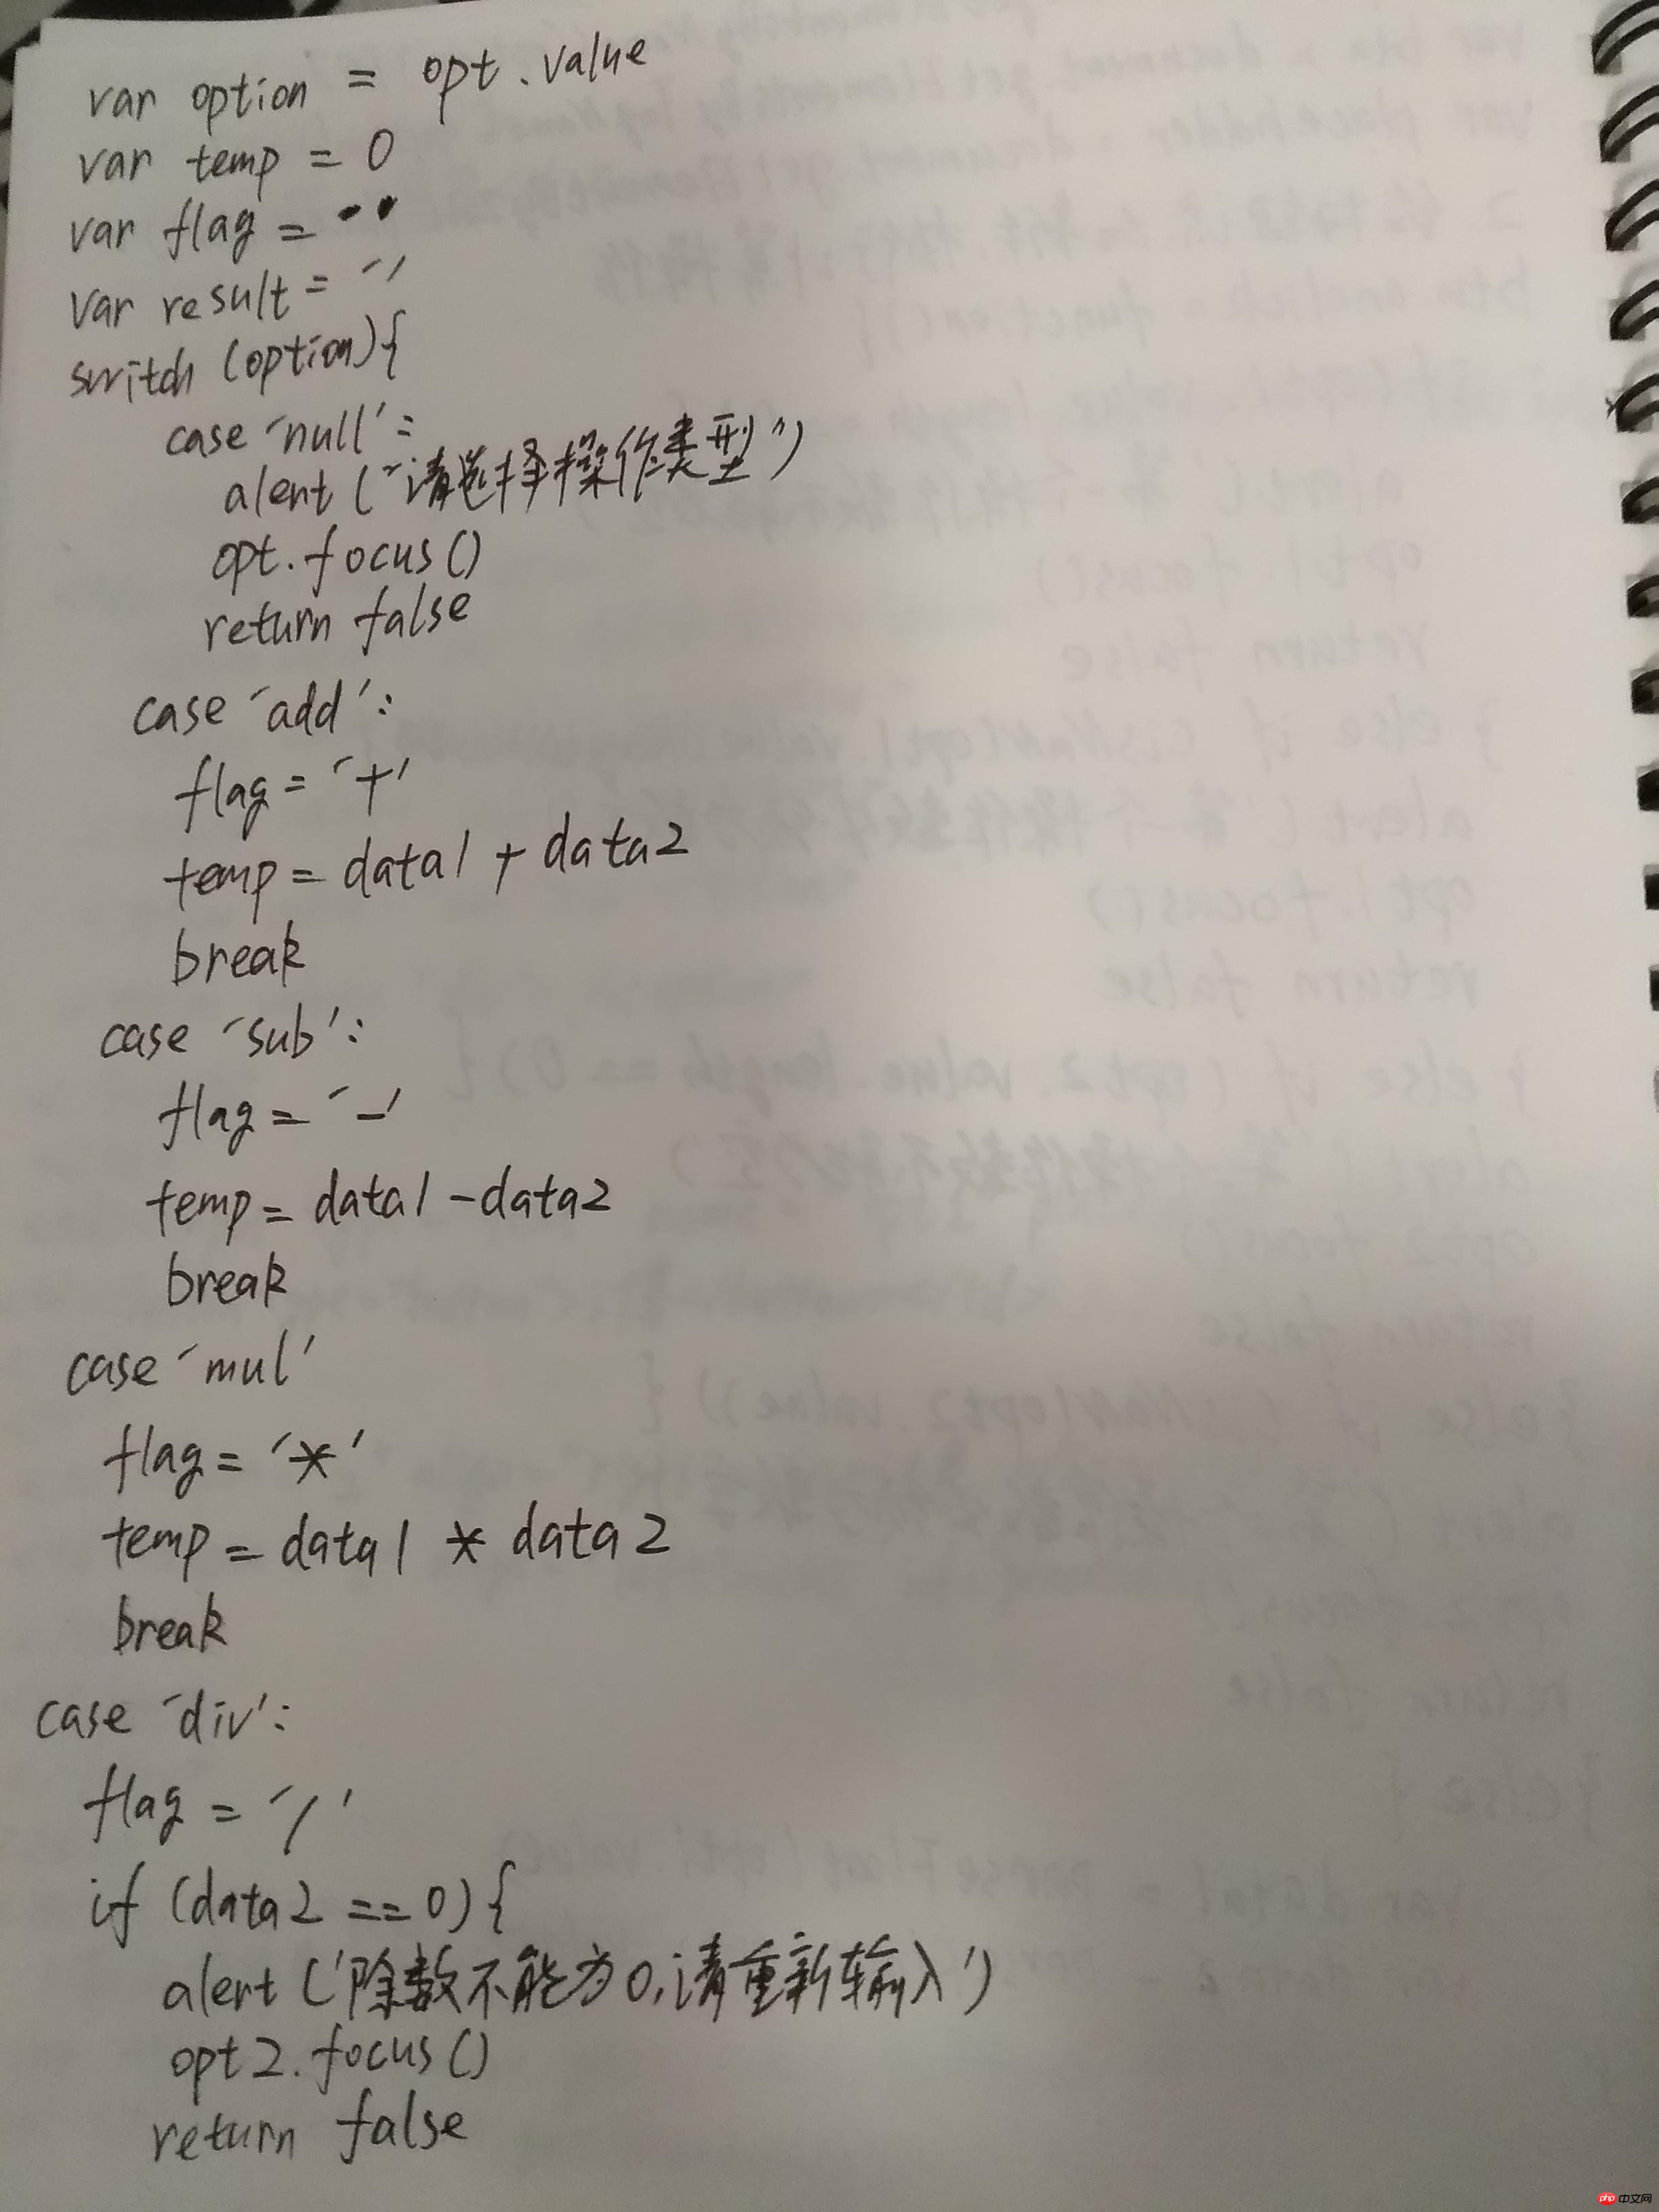 var option = opt.value
var temp = 0
var flag = ''
var result = ''
switch (option){
case 'null':
alert ('请选择操作类型')
opt.focus()
return false
case 'add':
flag = '+'
temp = data1 + data2
break
case 'sub':
flag = '-'
temp = data1 - data2
break
case 'mul'
flag = '*'
temp = data1 * data2
break
case 'div':
flag = '/'
if (data2 == 0){
alert ('除数不能为0,请重新输入')
opt2.focus()
return false
php 中文网